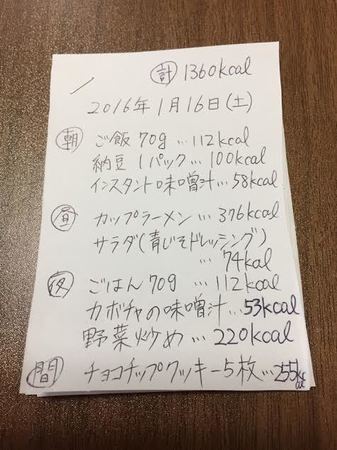 計 1360kcal
2016年1月16日(土)
朝 ご飯 70g…112kcal
納豆 1パック…100kcal
インスタント味噌汁…58kcal
昼 カップラーメン…376kcal
サラダ(青じそドレッシング)
…74kal
夜 ごはん 70g…112kcal
カボチャの味噌汁…53kcal
野菜炒め…220kcal
間 チョコチップクッキー5枚…255kcal